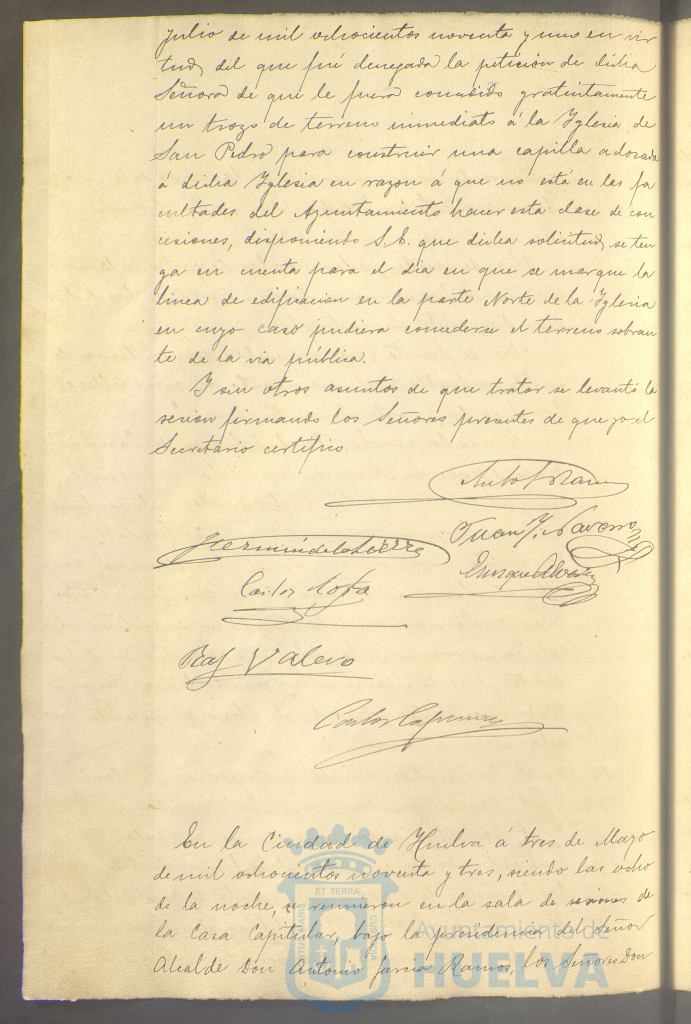 Julio de mil ochocientos noventa y uno en vir
tud, del que fué denegada la petición de dicha
Señora de que le fuera concedido gratuitamente
un trozo de terreno inmediato á la Yglesia de
San Pedro para construir una capilla adosada
á dicha Yglesia en razon á que no está en las fa
cultades del Ayuntamiento hacer esta clase de con
cesiones, disponiendo S.E. que dicha solicitud, se ten
ga en cuenta para el dia en que se marque la
linea de edificacion en la parte Norte de la Yglesia
en cuyo caso pudiera concederse el terreno sobran
te de la via pública.
Y sin otros asuntos de que tratar se levantó la
sesion firmando los Señores presentes de que yo el
Secretario certifico.
Juan J. Navarro
Fermín de la Sierra
Enrique Alvarez
Carlos
Raf Valero
Carlos
En la Ciudad de Huelva á tres de Mayo
de mil ochocientos noventa y tres, siendo las ocho
de la noche, se reunieron en la sala de sesiones de
la Casa Capitular, bajo la presidencia del Señor
Alcalde Don Antonio Garcia Ramos, los Señores Don
ET TERRÆ
Ayuntamiento de
HUELVA